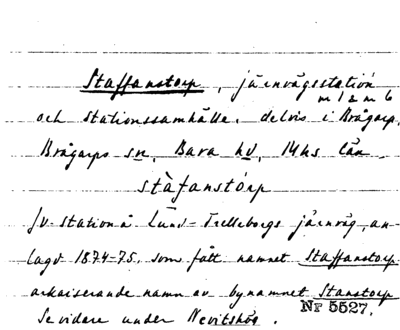 Staffanstorp, järnvägsstation
m 1 & m 6
och stationssamhälle, delvis i Brågarp,
Brågarps sn, Bara hd, Mhs län.
stàfanstórp
Jv-station å Lund-Trelleborgs järnväg, an-
lagd 1874-75, som fått namnet Staffanstorp
arkaiserande namn av bynamnet Stanstorp.
NF 5527.
Se vidare under Nevitshög.